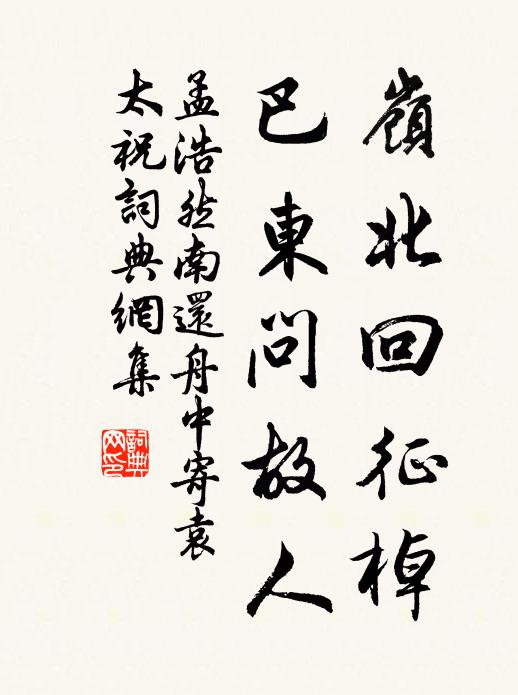 嶺北回征棹
巴東問故人
孟浩然南還舟中寄袁
太祝詞典網集
詞典
网印